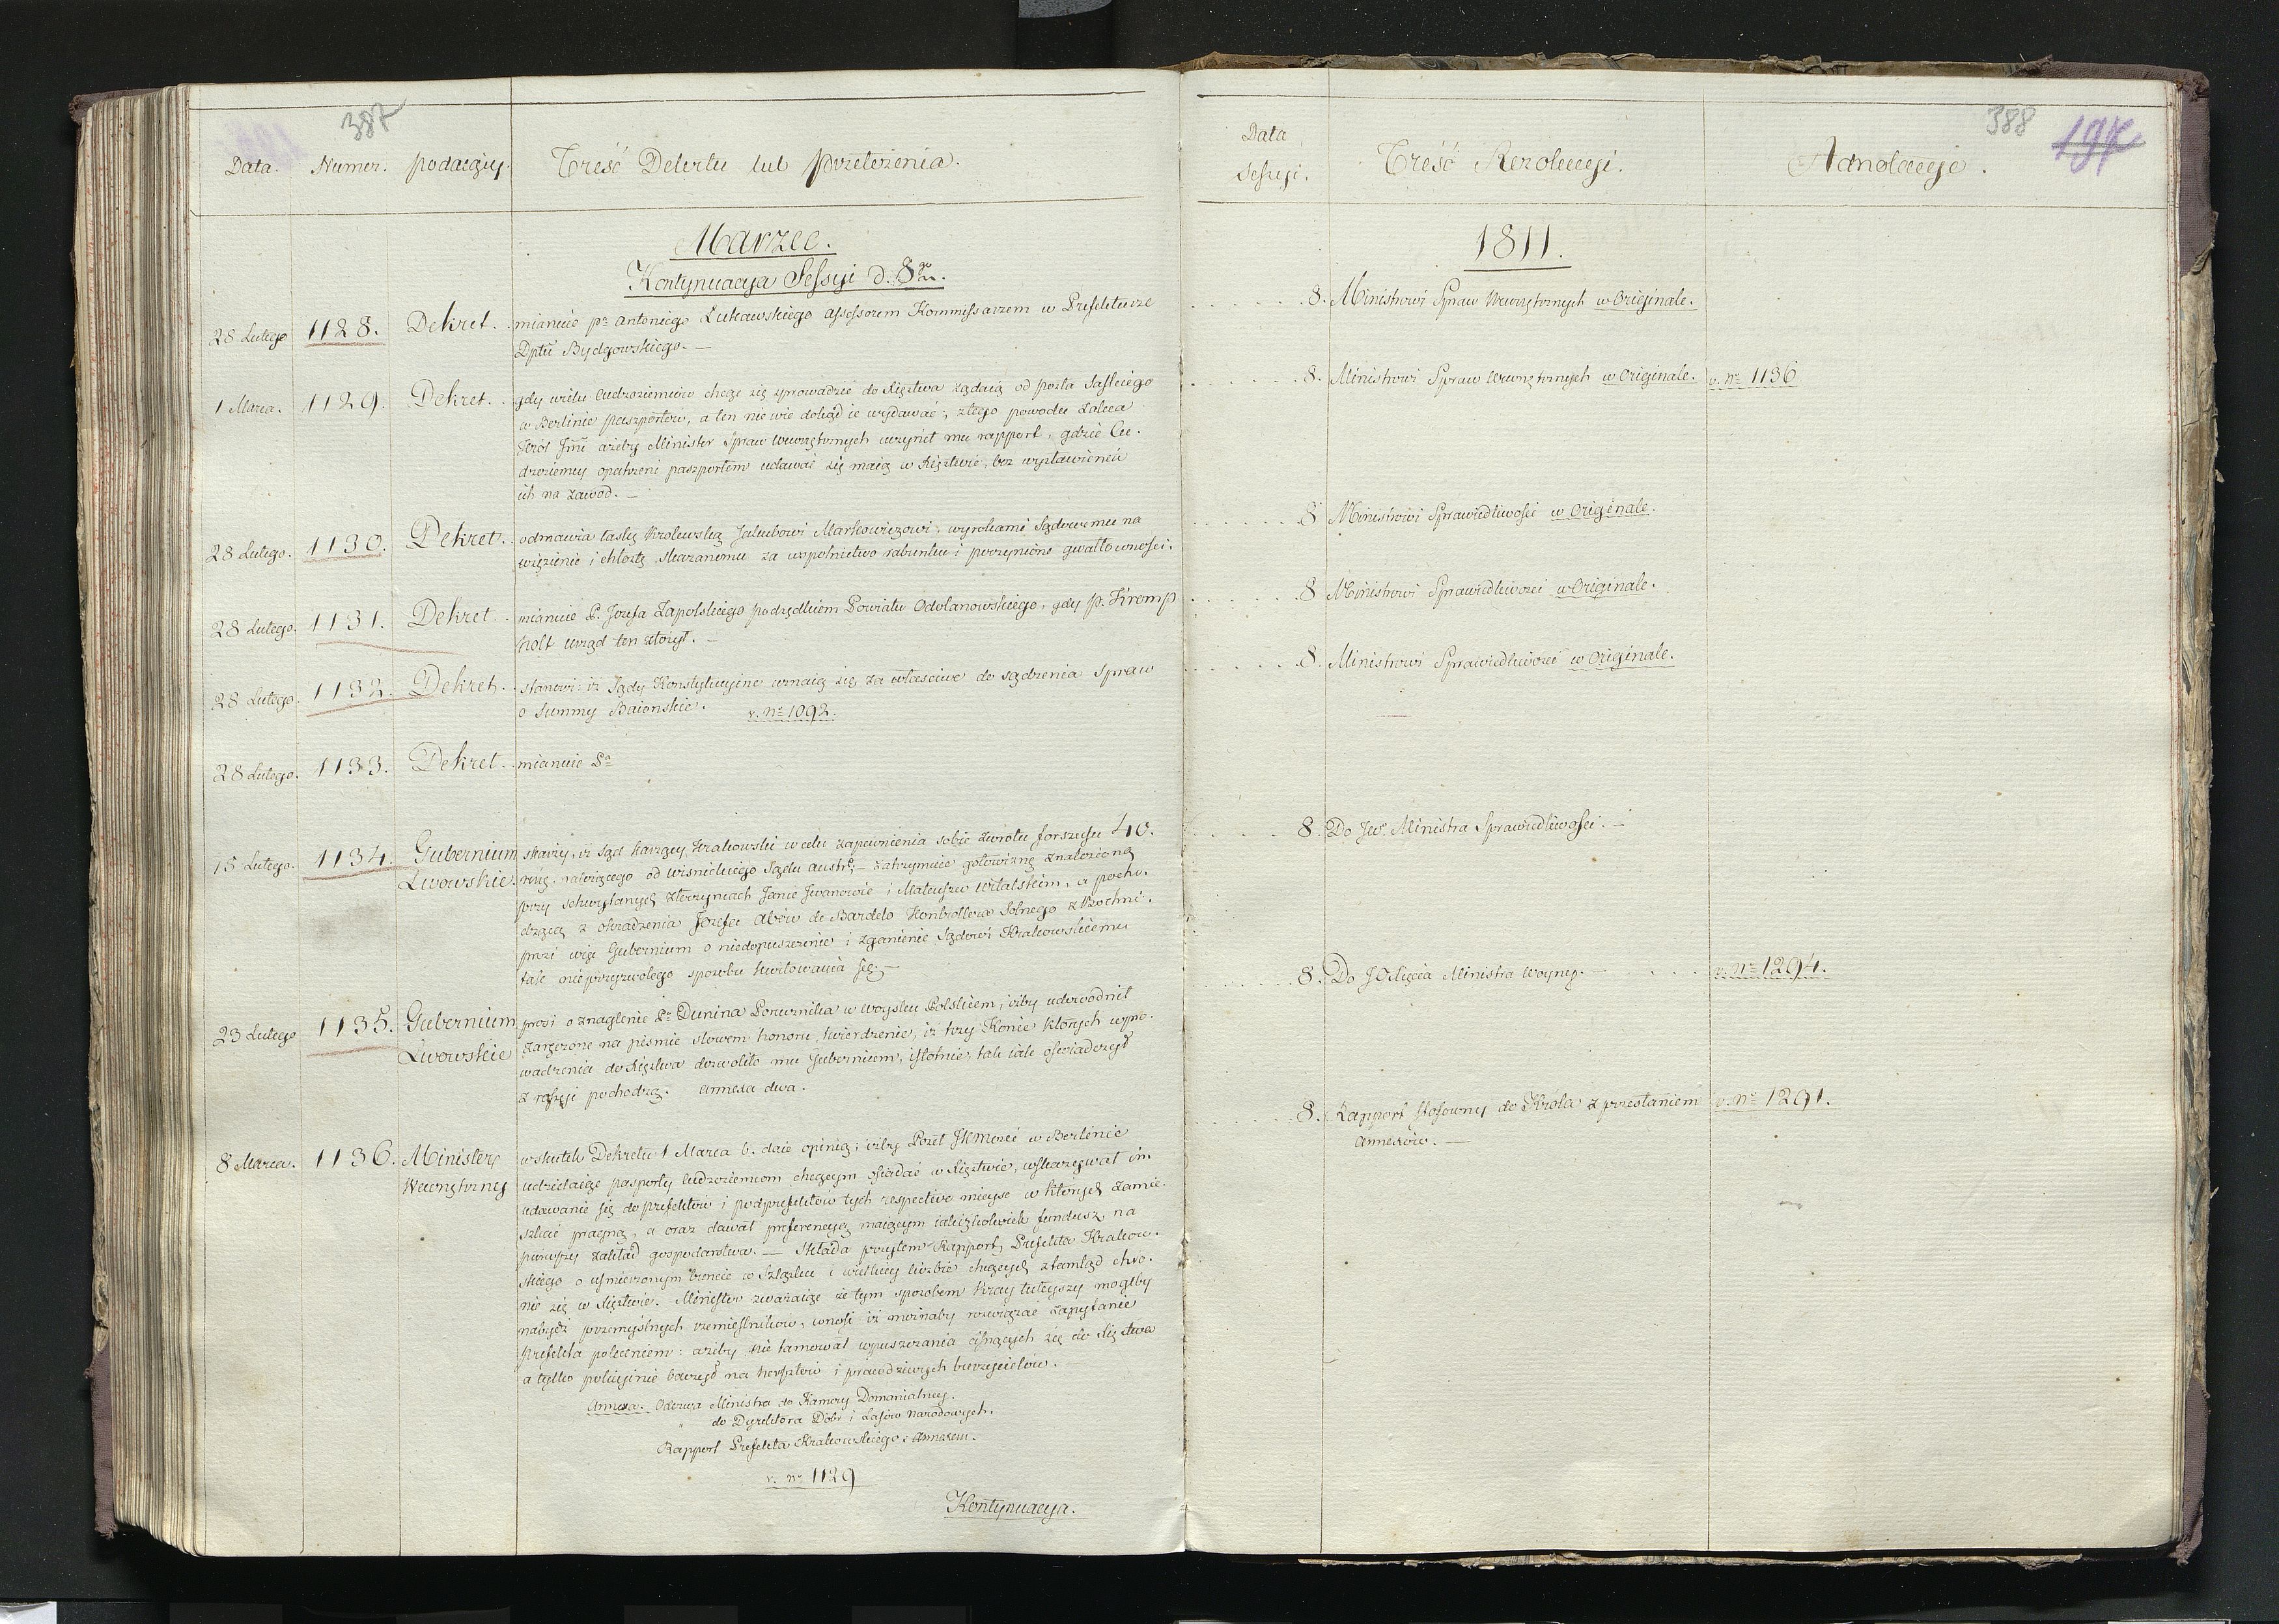 387
Data. Numer. podaiący. Treść Dekretu lub przełożenia.
Marzec.
Kontynuacya Sessyi d. 8go
28 Lutego 1128. Dekret. mianuie pa Antoniego Łukawskiego Assessorem Kommissarzem w Prefekturze
Dptu Bydgowskiego. —
1 Marca. 1129. Dekret. gdy wielu Cudzoziemców chcąc się sprowadzić do Xięstwa żądaią od posła Saskiego
w Berlinie paszportów, a ten nie wie dokąd ie wydawać; z tego powodu zaleca
Król Jmć ażeby Minister Spraw Wewnętrznych uczynił mu rapport, gdzie Cu-
dzoziemcy opatrzeni paszportem udawać się maią w Xięstwie, bez wystawienia
ich na zawod. —
28 Lutego. 1130. Dekret. odmawia łaskę Krolewską Jakubowi Markowiczowi, wyrokami Sądowemi na
więzienie i chłostę skazanemu za wspolnictwo rabunku i poczynione gwałtowności.
28 Lutego. 1131. Dekret mianuie P. Jozefa Zapolskiego podsędkiem Powiatu Odolanowskiego, gdy p. Kremp
holt urząd ten złożył. —
28 Lutego. 1132. Dekret. stanowi: iż Sądy Konstytucyine uznaią się za właściwe do sądzenia Spraw
o Summy Baionskie. v. No 1092.
28 Lutego. 1133. Dekret. mianuie Pa
15 Lutego. 1134. Gubernium skarży, iż Sąd karzący Krakowski w celu zapewnienia sobie zwrotu forszusu 40.
Lwowskie. należącego od Wisnickiego Sądu austr: — zatrzymuie gotowiznę znalezioną
przy schwytanych złoczyńcach Janie Jwanowie i Mateuszu Witalskim, a pocho-
dzącą z okradzenia Jozefa Abów de Bardelo Kontrollera Solnego z Bochni.
prosi więc Gubernium o niedopuszczenie i zganienie Sądowi Krakowskiemu
tak nieprzyzwoitego sposobu kwitowania się. —
23 Lutego 1135. Gubernium prosi o znaglenie Pa Dunina Porucznika w Woysku Polskiem, iżby udowodnił
Lwowskie zaręczone na pismie słowem honoru, twierdzenie, iż trzy Konie których wypro-
wadzenia do Xięstwa dozwoliło mu Gubernium, istotnie, tak iak oświadczył
z rossyi pochodzą. annexa dwa.
8 Marca. 1136. Minister wskutek Dekretu 1 Marca b. daie opinią; iżby Poseł JKMości w Berlinie
Wewnętrzney udzielaiąc pasporty ludzoziemcom chcącym osiadać w Xięstwie, wskazywał im
udawanie się do prefektów i podprefektów tych respective mieysc w których zamie-
szkać pragną, a oraz dawał preferencyą maiącym iakiżkolwiek fundusz na
pierwszy zakład gospodarstwa. — Składa przytem Rapport Prefekta Krakow-
skiego o usmierzonym buncie w Szląsku i wielkiey liczbie chcących ztamtąd chro-
nić się w Xięstwie. Minister zważaiąc że tym sposobem Kray tuteyszy mogłby
nabydź przemyślnych rzemieślnikow, wnosi iż możnaby rozwiązać zapytanie
Prefekta poleceniem: ażeby nie tamował wpuszczania cisnących się do Xięstwa
a tylko policyinie baczył na hersztów i prawdziwych burzycielów. —
Annexa. Odezwa Ministra do Kamery Domanialney.
" do Dyrektora Dóbr i Lasów Narodowych.
Rapport Prefekta Krakowskiego z Annexem.
v. No 1129
Kontynuacya.
388
197
Data
Sessyi. Treść Rezolucyi. Adnotacyje.
1811.
8. Ministrowi Spraw Wewnętrznych w Originale.
8. Ministrowi Spraw Wewnętrznych w Originale. v. No 1136
8 Ministrowi Sprawiedliwości w Originale.
8 Ministrowi Sprawiedliwości w Originale.
8. Ministrowi Sprawiedliwości w Originale.
8. Do Jw. Ministra Sprawiedliwości. —
8. Do JO Xięcia Ministra Woyny. — v. No 1294.
8. Rapport stosowny do Króla z przesłaniem v. No 1291.
Annexów. —